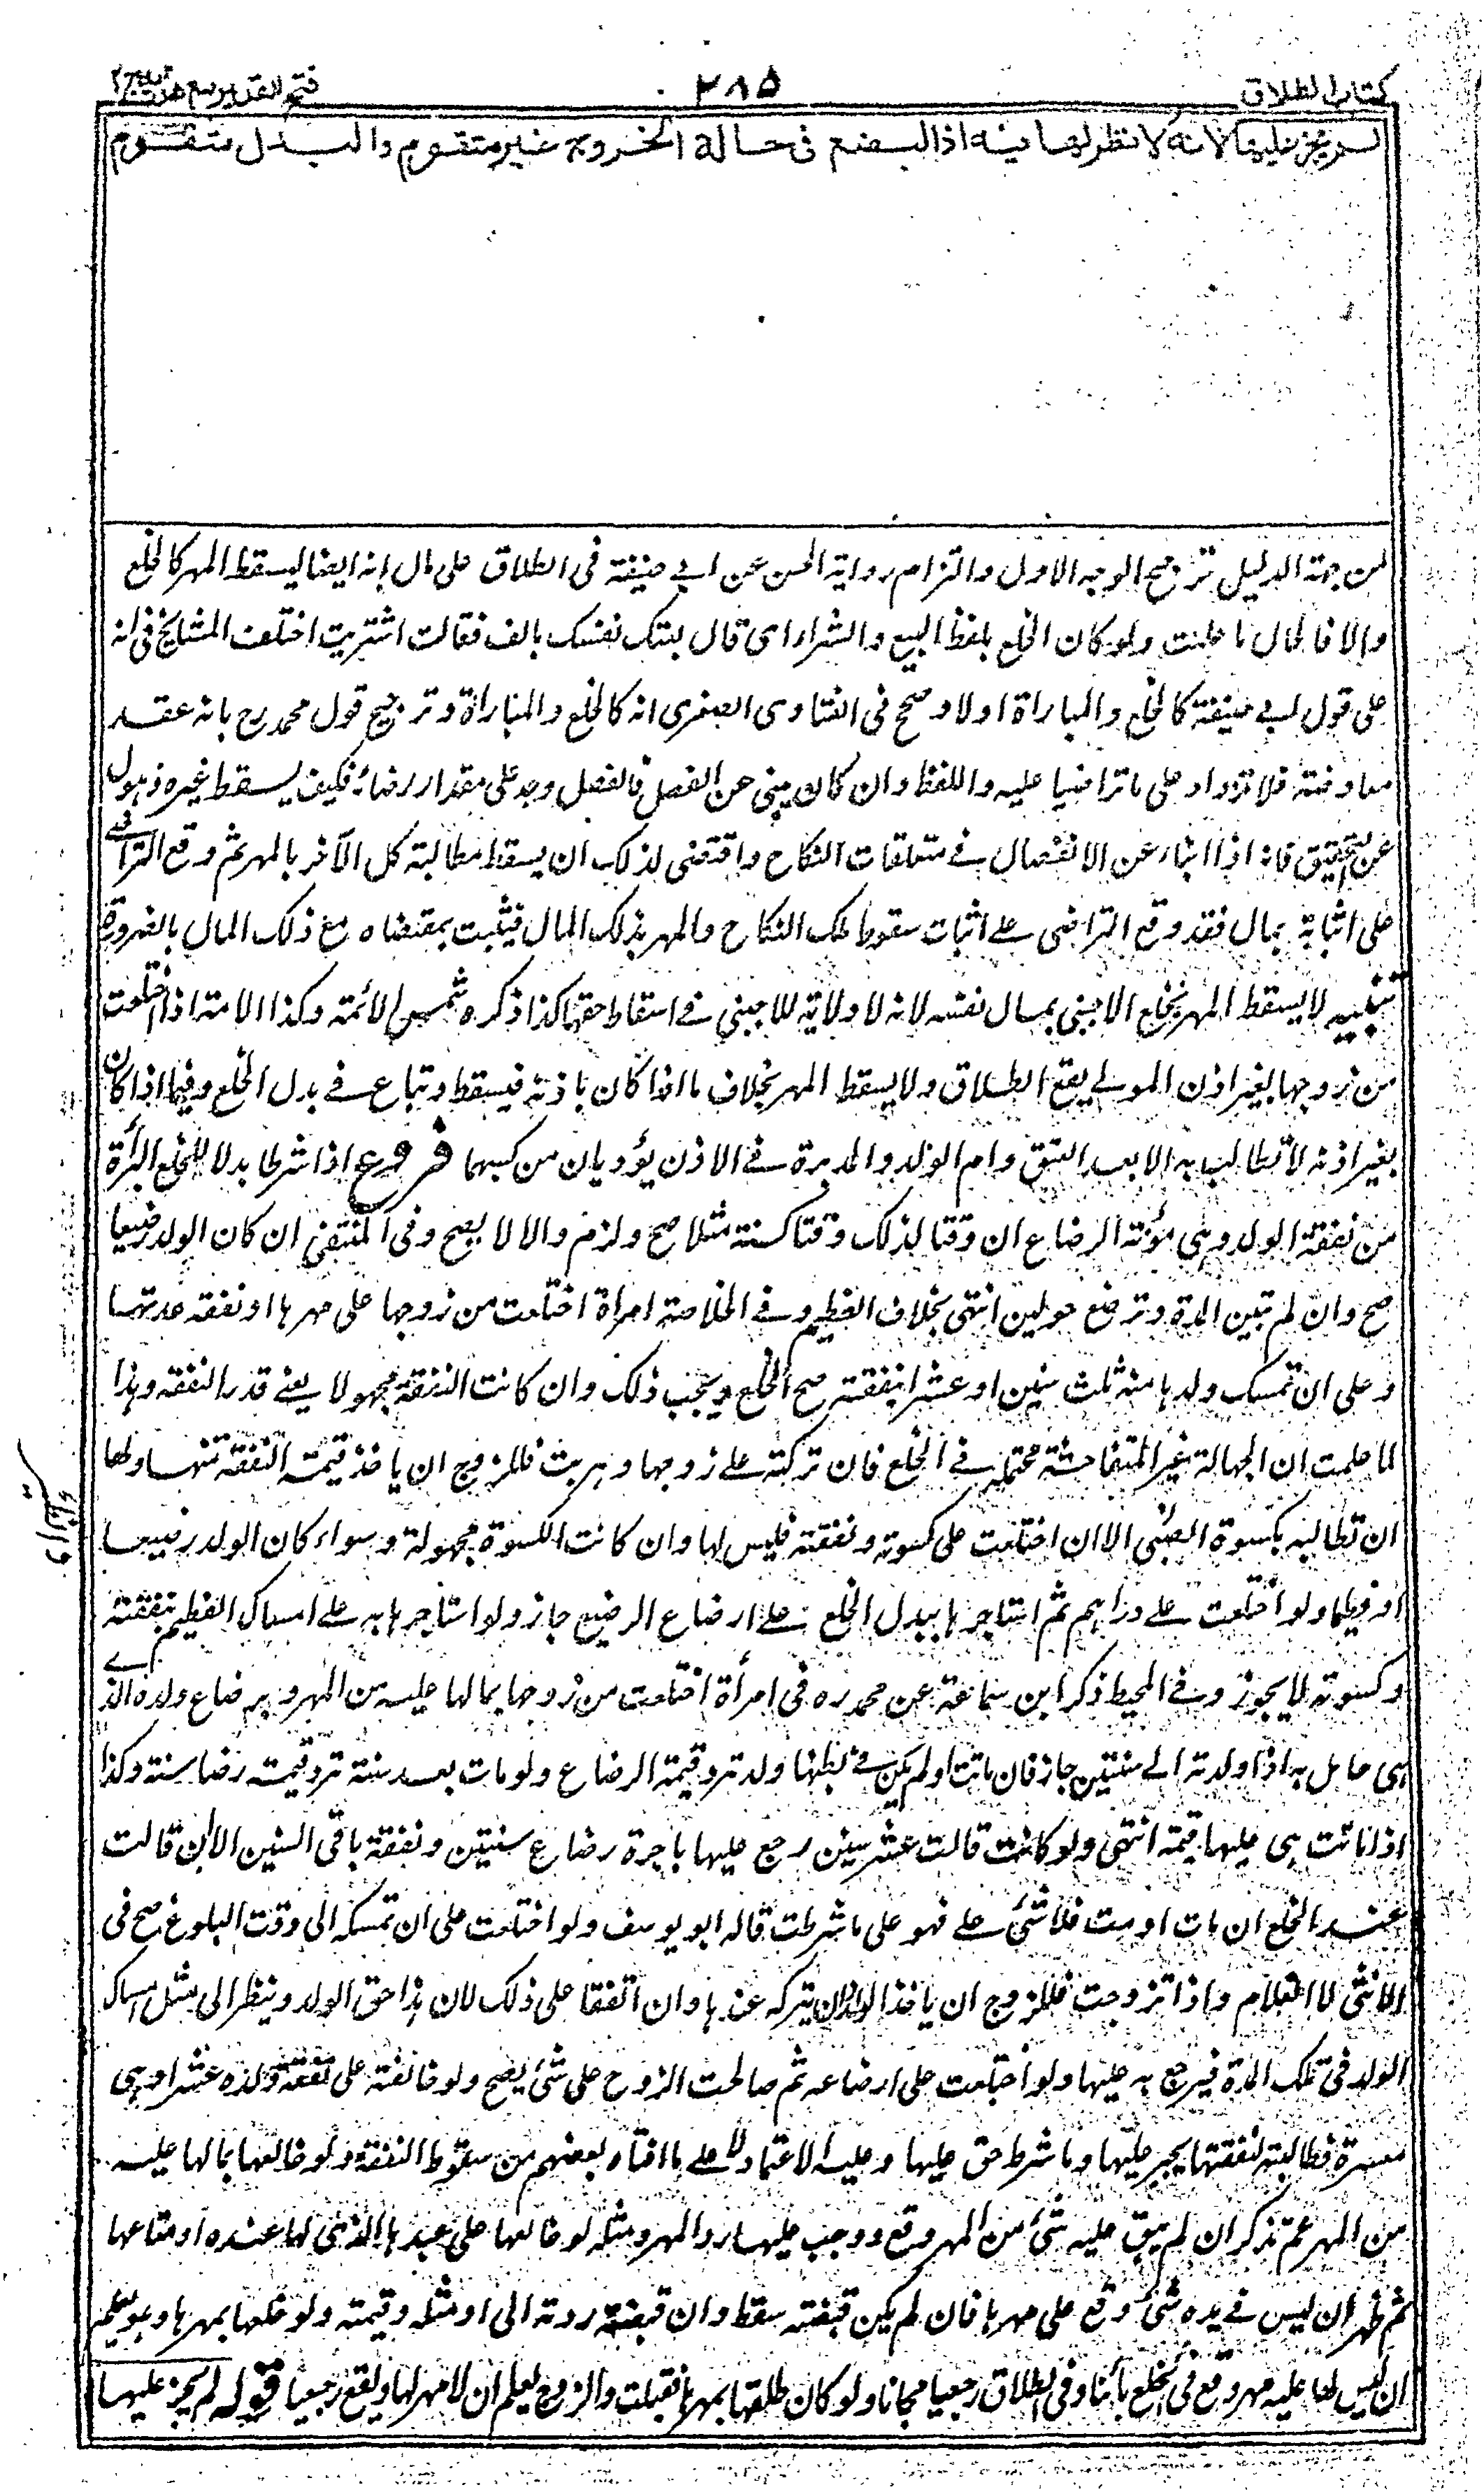 كتاب الطلاق
٢٨٥
فتح القدير مع هداية ج٢
لم يجز عليها لانه لا نظر لها فيه اذ البضع فى حالة الخروج غير متقوم والبدل متقوم
من جهة الدليل ترجيح الوجه الاول والتزام رواية الحسن عن ابي حنيفة فى الطلاق على مال انه ايضا يسقط المهر كالخلع
والا فالحال ما علمت ولو كان الخلع بلفظ البيع والشراء اى قال بعتك نفسك بالف فقالت اشتريت اختلف المشايخ فى انه
على قول ابي حنيفة كالخلع والمباراة اولا وصحح فى الفتاوى الصغرى انه كالخلع والمباراة وترجيح قول محمد رح بانه عقد
معاوضة فلا تزداد على ما تراضيا عليه واللفظ وان كان يبنى عن الفصل فالفصل وجد على مقدار رضائه فكيف يسقط غيره ذهول
عن التحقيق فانه اذا انباء عن الانفصال فے متعلقات النكاح واقتضى لذلك ان يسقط مطالبة كل الآخر بالمهر ثم وقع التراضے
على اثباته بمال فقد وقع التراضى علے اثبات سقوط ملك النكاح والمهر بذلك المال فيثبت بمقتضاه مع ذلك المال بالضرورة
تنبيه لا يسقط المهر بخلع الاجنبي بمال نفسه لانه لا ولاية للاجنبي فے اسقاط حقها كذا ذكره شمس الائمة وكذا الامة اذا اختلعت
من زوجها بغير اذن المولے يقع الطلاق ولا يسقط المهر بخلاف ما اذا كان باذنه فيسقط وتباع فے بدل الخلع وفيما اذا كان
بغير اذنه لا تطالب به الا بعد العتق وام الولد والمدبرة فے الاذن يؤديان من كسبهما فروع اذا شرطا بدلا للخلع البرأة
من نفقة الولد وهى مؤنة الرضاع ان وقتا لذلك وقتا كسنة مثلا صح ولزم والا لا يصح وفى المنتقى ان كان الولد رضيعا
صح وان لم تبين المدة وترضع حولين انتهى بخلاف الفطيم وفے الخلاصة امراة اختلعت من زوجها على مهرها او نفقة عدتها
وعلى ان تمسك ولدها منه ثلث سنين او عشرا بنفقته صح الخلع ويجب ذلك وان كانت النفقة مجهولا يعنے قدر النفقة وهذا
لما علمت ان الجهالة غير المتفاحشة محتملة فے الخلع فان تركته علے زوجها وهربت فللزوج ان ياخذ قيمة النفقة منها ولها
ان تطالبه بكسوة الصبى الا ان اختلعت على كسوته ونفقته فليس لها وان كانت الكسوة مجهولة وسواء كان الولد رضيعا
او فطيما ولو اختلعت علے دراهم ثم استاجرها ببدل الخلع علے ارضاع الرضيع جاز ولو استاجرها به علے امساك الفطيم بنفقته
وكسوته لا يجوز وفے المحيط ذكر ابن سماعة عن محمد ره فى امرأة اختلعت من زوجها بما لها عليه من المهر وبرضاع ولده الذے
هى حامل به اذا ولدته الے سنتين جاز فان مات او لم يكن فے بطنها ولد ترد قيمة الرضاع ولو مات بعد سنة ترد قيمة رضاع سنة وكذا
اذا ماتت هى عليها قيمة انتهى ولو كانت قالت عشر سنين رجع عليها باجرة رضاع سنتين ونفقة باقى السنين الا ان قالت
عند الخلع ان مات او مت فلا شئ علے فهو على ما شرطت قاله ابو يوسف ولو اختلعت على ان تمسكه الى وقت البلوغ صح فى
الانثى لا الغلام واذا تزوجت فللزوج ان ياخذ الولد ان يتركه عندها وان اتفقا على ذلك لان هذا حق الولد وينظر الى مثل امساك
الولد فى تلك المدة فيرجع به عليها ولو اختلعت على ارضاعه ثم صالحت الزوج على شئ يصح ولو خالعته على نفقة ولده عشرا وهى
معسرة فطالبته بنفقتها يجبر عليها وما شرط حق عليها وعليه الاعتماد لا علے ما افتاه بعضهم من سقوط النفقة ولو خالعها بما لها عليه
من المهر ثم تذكر ان لم يبق عليه شئ من المهر وقع ووجب عليها رد المهر ومثله لو خالعها على عبدها الذى لها عنده او متاعها
ثم ظهر ان ليس فے يده شئ وقع على مهرها فان لم يكن قبضته سقط وان قبضته ردته الى او مثله وقيمته ولو خلعها بمهرها وهو يعلم
ان ليس لها عليه مهر وقع فى الخلع بائنا وفى الطلاق رجعيا مجانا ولو كان طلقها بمهرها فقبلت والزوج يعلم ان لا مهر لها وقع رجعيا قوله لم يجز عليها